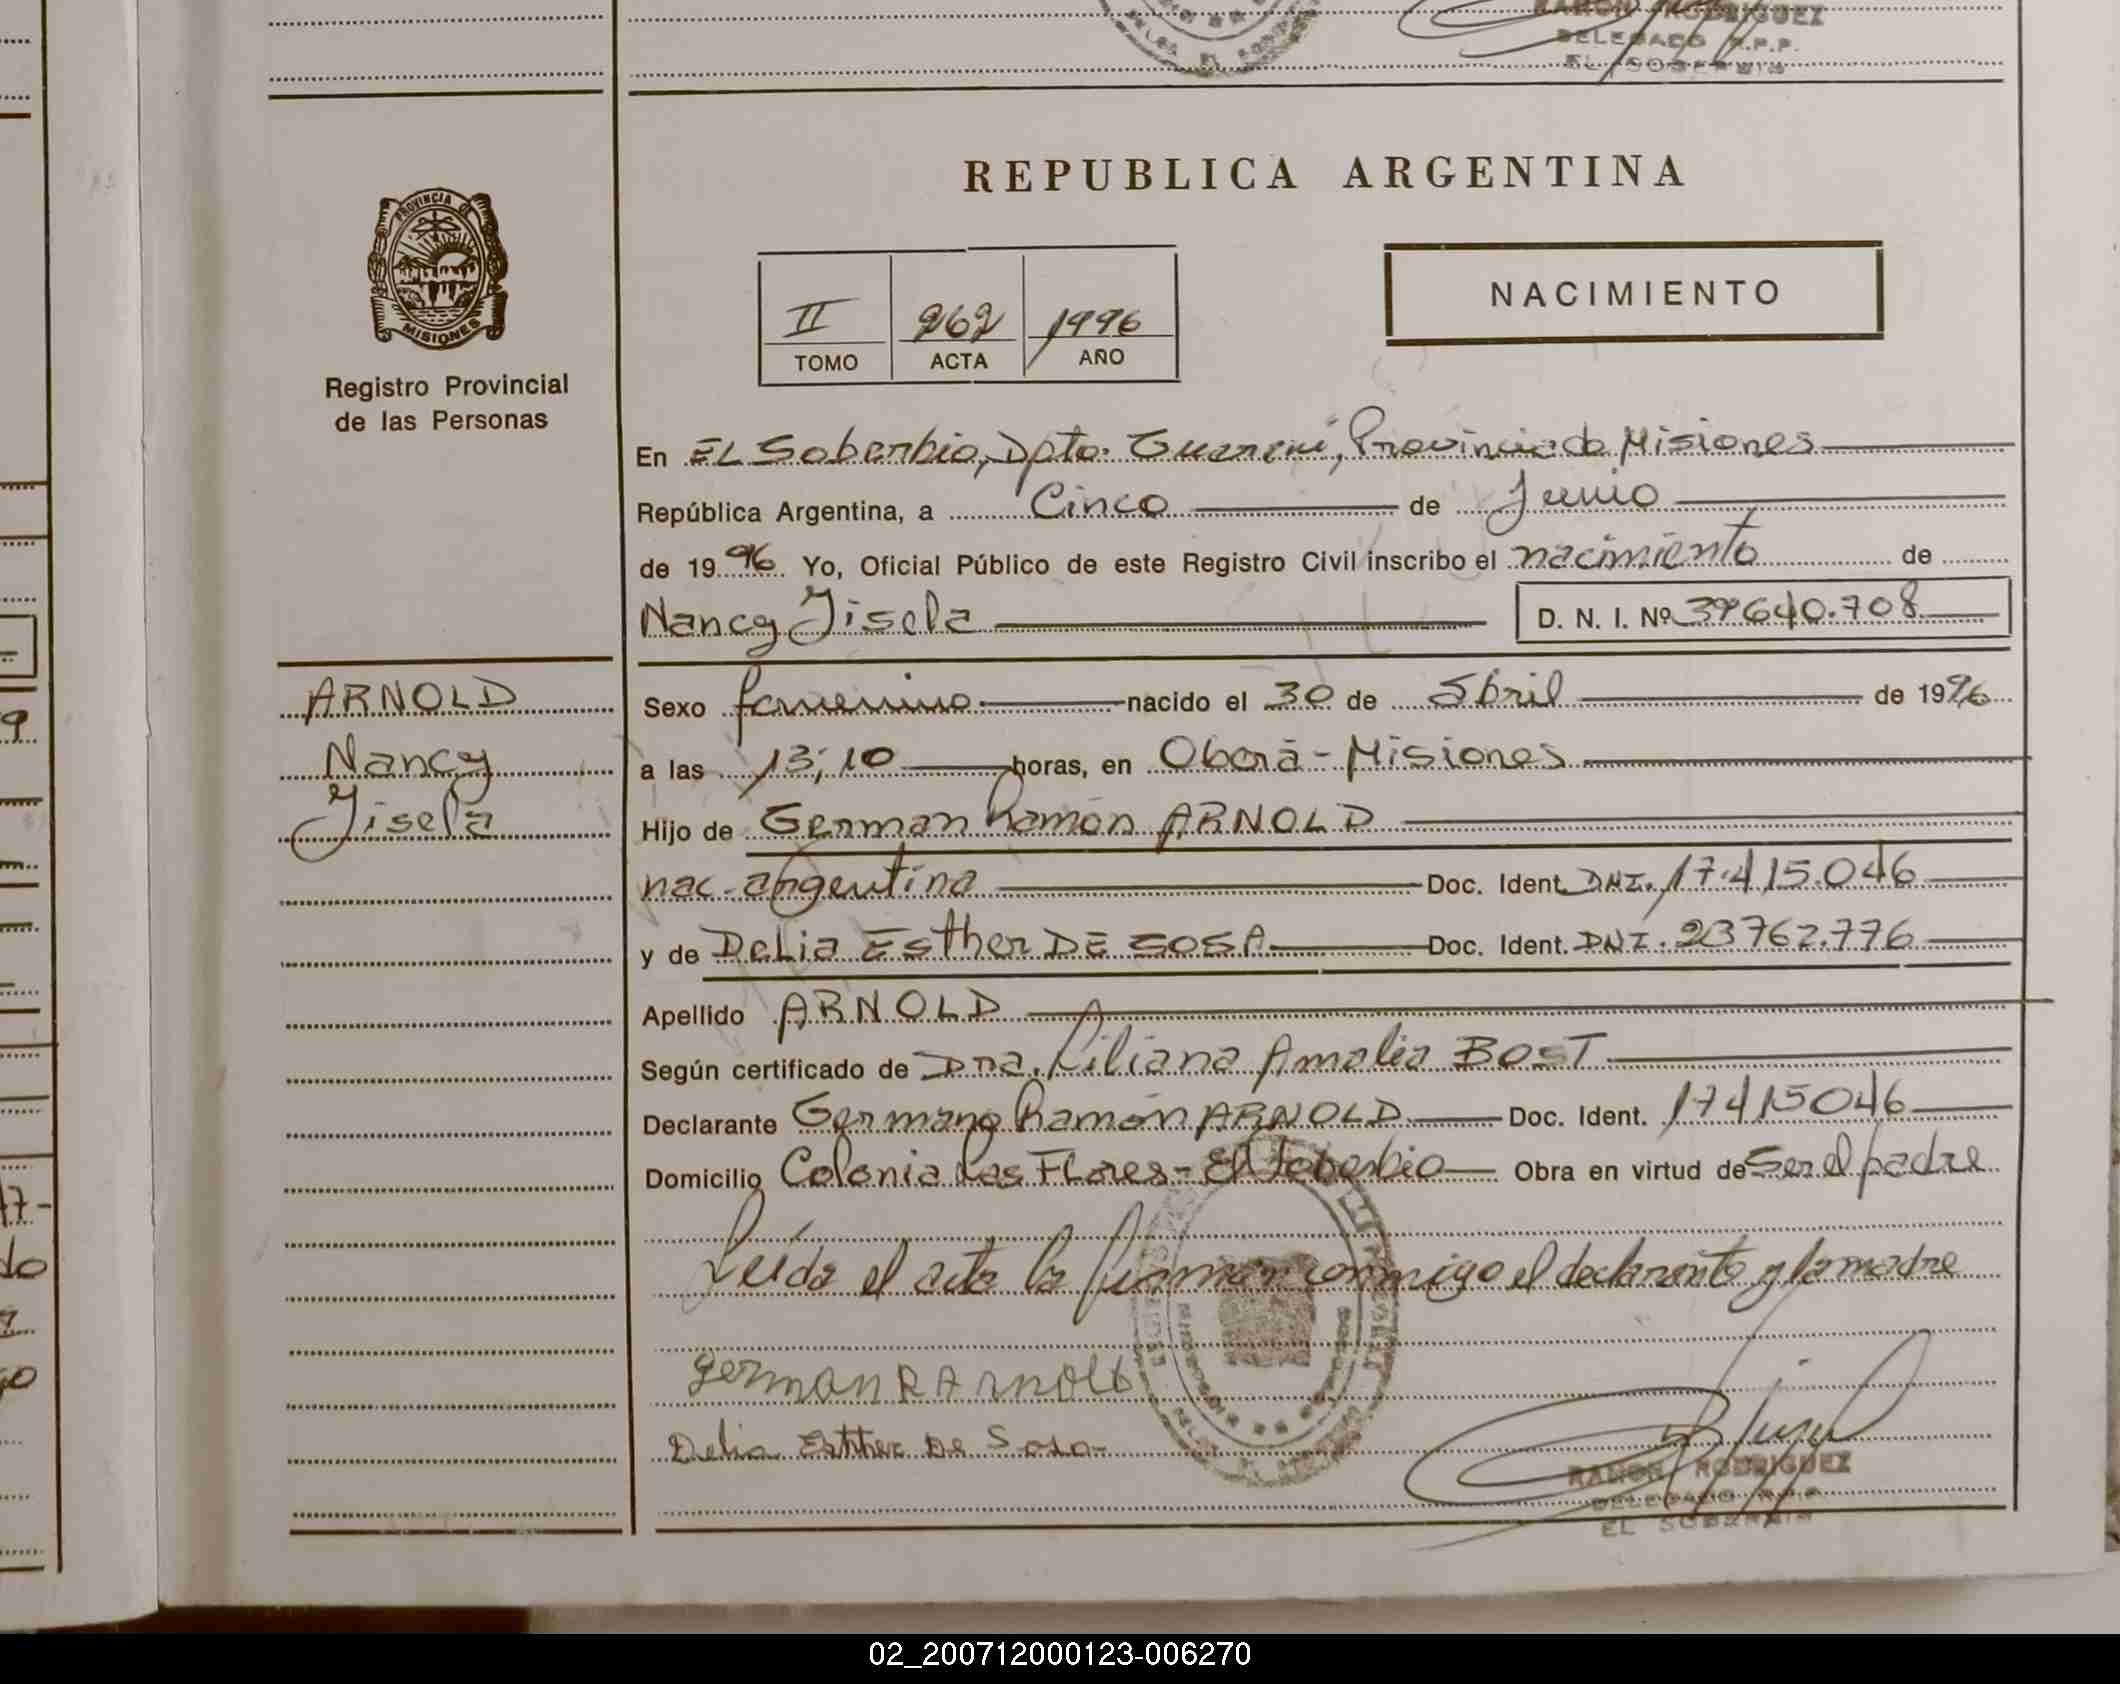 RAMON RODRIGUEZ
DELEGADO R.P.P.
EL SOBERBIO
PROVINCIA DE
MISIONES
Registro Provincial
de las Personas
ARNOLD
Nancy
Gisela
REPUBLICA ARGENTINA
II 262 1996
TOMO ACTA AÑO
NACIMIENTO
En EL Soberbio, Dpto. Guaraní, Provincia de Misiones
República Argentina, a Cinco de Junio
de 1996 Yo, Oficial Público de este Registro Civil inscribo el nacimiento de
Nancy Gisela D. N. I. Nº 39640.708
Sexo femenino nacido el 30 de Abril de 1996
a las 13;10 horas, en Oberá - Misiones
Hijo de German Ramón ARNOLD
nac. argentina Doc. Ident. DNI. 17.415.046
y de Delia Esther DE SOSA Doc. Ident. DNI. 23762.776
Apellido ARNOLD
Según certificado de Dra. Liliana Amalia BOST
Declarante Germano Ramón ARNOLD Doc. Ident. 17415046
Domicilio Colonia Las Flores - El Soberbio Obra en virtud de Ser el padre
Leída el acta la firman conmigo el declarante y la madre
German R Arnold
Delia Esther De Sosa
RAMON RODRIGUEZ
DELEGADO R.P.P.
EL SOBERBIO
02_200712000123-006270